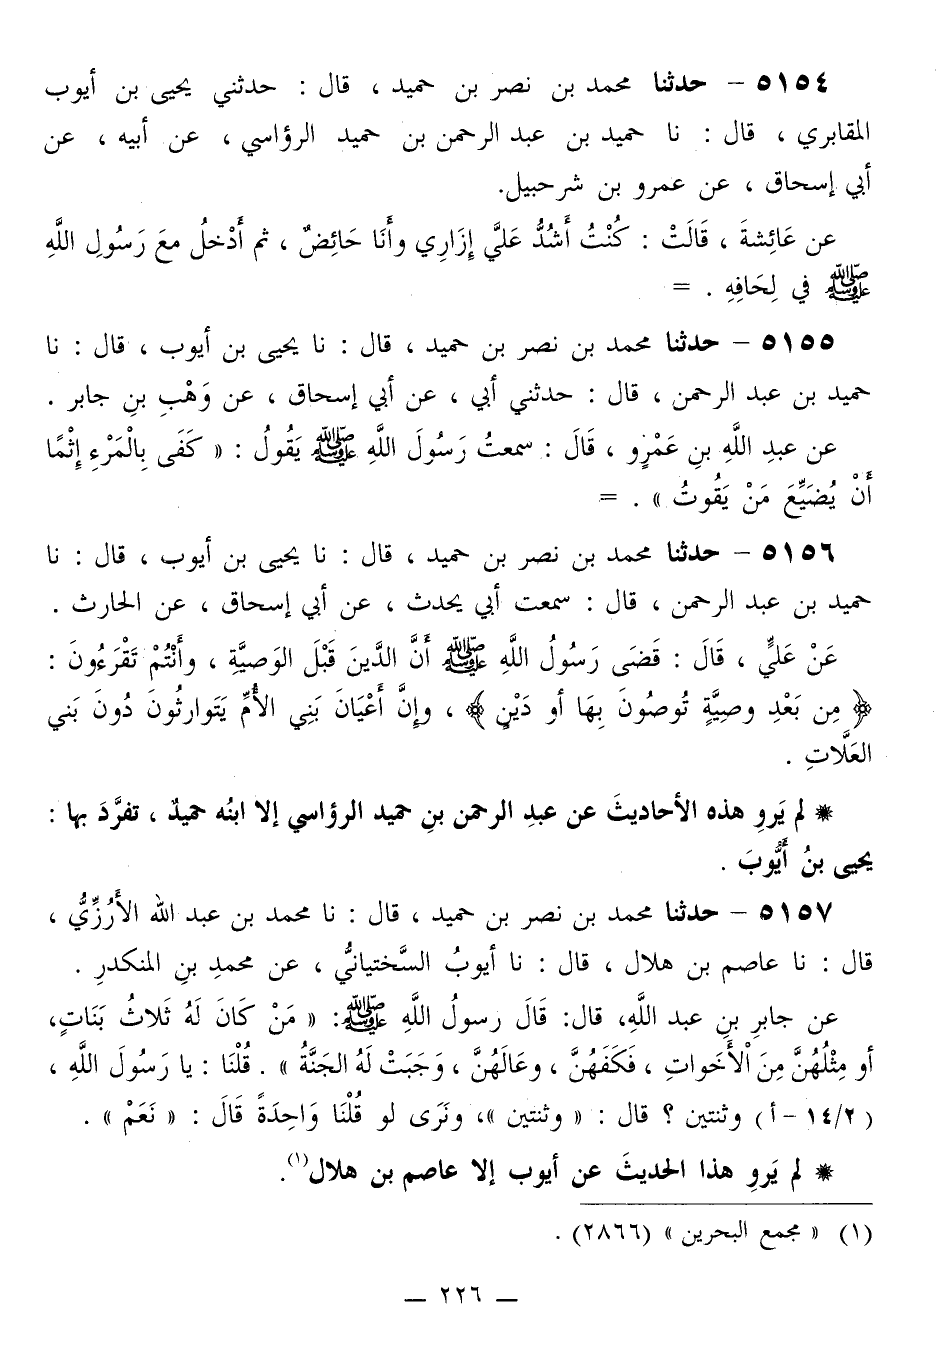 ٥١٥٤ – حدثنا محمد بن نصر بن حميد ، قال : حدثني يحيى بن أيوب
المقابري ، قال : نا حميد بن عبد الرحمن بن حميد الرؤاسي ، عن أبيه ، عن
أبي إسحاق ، عن عمرو بن شرحبيل.
عن عَائِشةَ ، قَالَتْ : كُنْتُ أَشُدُّ عَلَيَّ إِزَارِي وأَنَا حَائِضٌ ، ثم أَدْخلُ معَ رَسُولِ اللَّهِ
ﷺ في لِحَافِهِ . =
٥١٥٥ – حدثنا محمد بن نصر بن حميد ، قال : نا يحيى بن أيوب ، قال : نا
حميد بن عبد الرحمن ، قال : حدثني أبي ، عن أبي إسحاق ، عن وَهْبِ بنِ جابر .
عن عبدِ اللَّهِ بنِ عَمْرٍو ، قَالَ : سمعتُ رَسُولَ اللَّهِ ﷺ يَقُولُ : « كَفَى بِالْمَرْءِ إِثْمًا
أَنْ يُضَيِّعَ مَنْ يَقُوتُ » . =
٥١٥٦ – حدثنا محمد بن نصر بن حميد ، قال : نا يحيى بن أيوب ، قال : نا
حميد بن عبد الرحمن ، قال : سمعت أبي يحدث ، عن أبي إسحاق ، عن الحارث .
عَنْ عَلِيٍّ ، قَالَ : قَضَى رَسُولُ اللَّهِ ﷺ أَنَّ الدَّينَ قَبْلَ الوَصيَّةِ ، وأَنْتُمْ تَقْرَءُونَ :
﴿ مِن بَعْدِ وصِيَّةٍ تُوصُونَ بِهَا أو دَيْنٍ ﴾ ، وإِنَّ أَعْيَانَ بَنِي الأُمِّ يَتَوارثُونَ دُونَ بَني
العَلَّاتِ .
* لم يَروِ هذه الأحاديثَ عن عبدِ الرحمن بنِ حميد الرؤاسي إلا ابنُه حميدٌ ، تفرَّدَ بها :
يحيى بنُ أَيُّوبَ .
٥١٥٧ – حدثنا محمد بن نصر بن حميد ، قال : نا محمد بن عبد الله الأَرُزِّيُّ ،
قال : نا عاصم بن هلال ، قال : نا أيوبُ السَّختيانيُّ ، عن محمدِ بنِ المنكدرِ .
عن جابرِ بنِ عبد اللَّهِ، قال: قَالَ رسولُ اللَّهِ ﷺ: « مَنْ كَانَ لَهُ ثَلاثُ بَنَاتٍ،
أو مِثْلُهُنَّ مِنَ الْأَخَواتِ ، فَكَفَهُنَّ ، وعَالَهُنَّ ، وَجَبَتْ لَهُ الجَنَّةُ » . قُلْنَا : يا رَسُولَ اللَّهِ ،
(٢/ ١٤ – أ) وثنتين ؟ قال : « وثنتين »، ونَرَى لو قُلْنَا وَاحِدَةً قَالَ : « نَعَمْ » .
* لم يَروِ هذا الحديثَ عن أيوب إلا عاصم بن هلال(١).
(١) « مجمع البحرين » (٢٨٦٦) .
— ٢٢٦ —